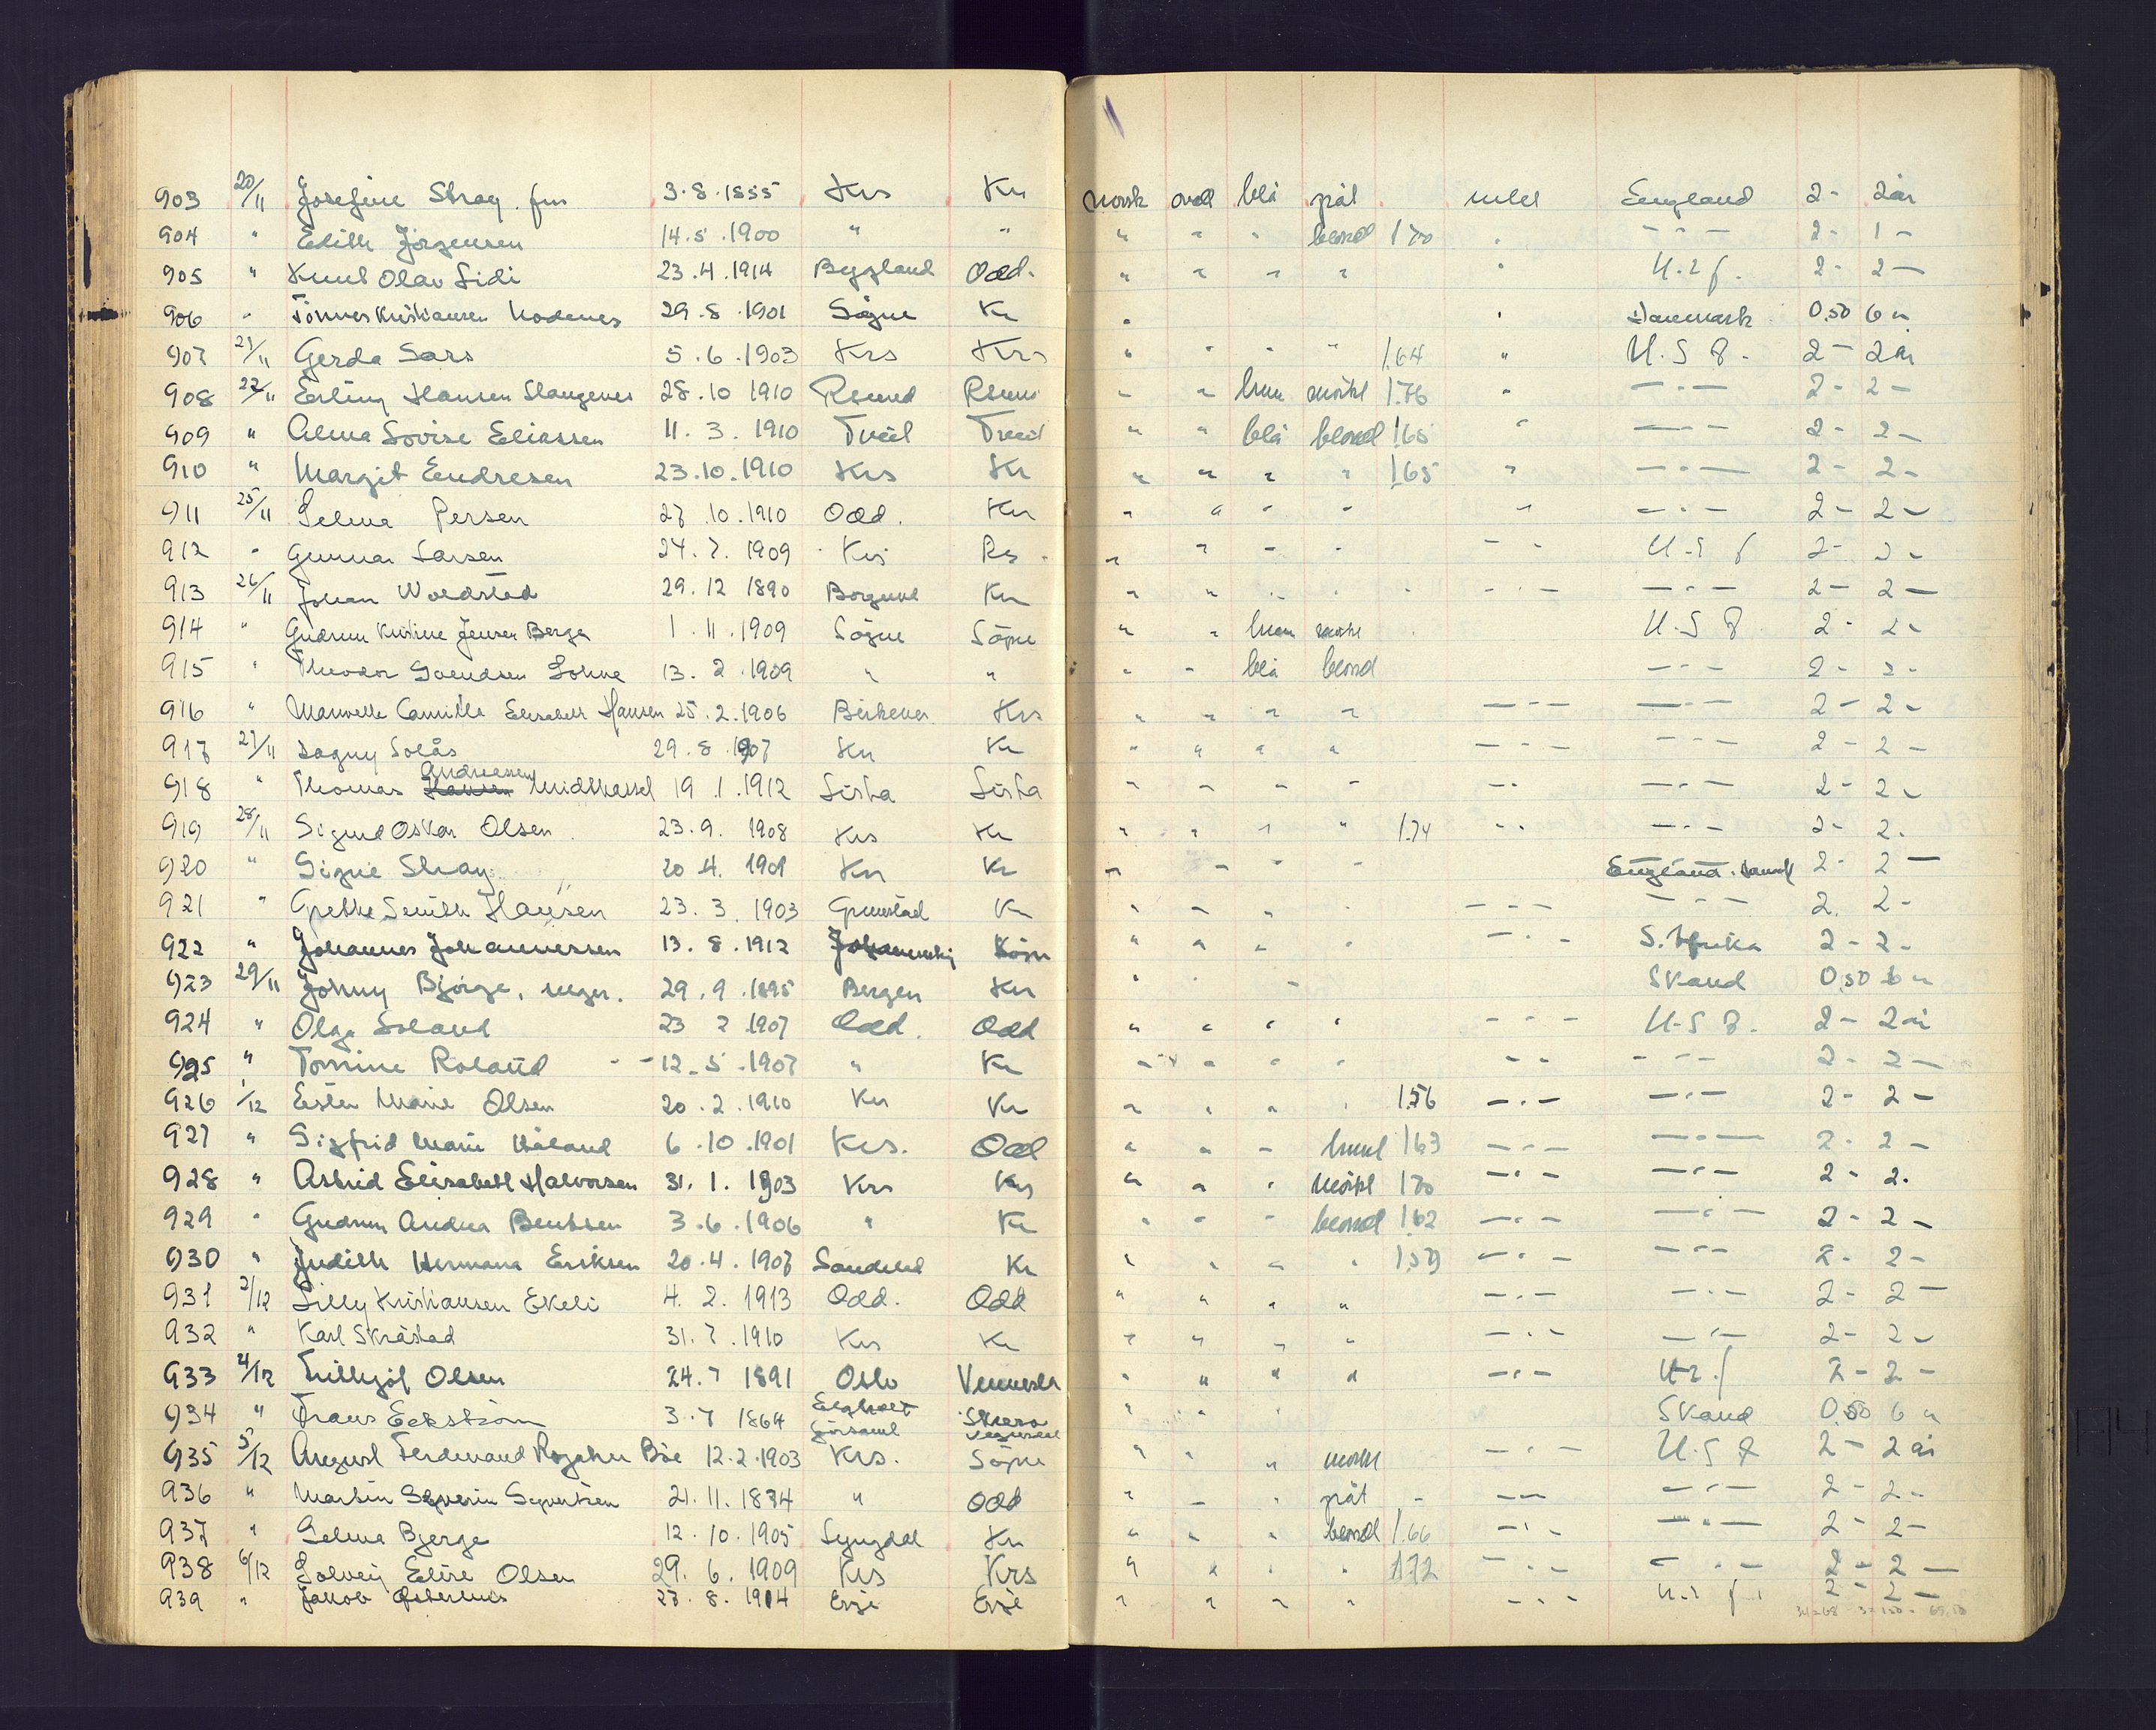 903 20/11 Josefine Stray. fru 3.8.1855 Krs Kr norsk oval blå grål intet England 2- 2år
904 " Edith Jörgensen 14.5.1900 " " " " " blond 1.70 " -"- 2- 1-
905 " Knut Olav Lidi 23.4.1914 Bygland Odd. " " " " " U.2 f. 2- 2-
906 " Tönnes Kristiansen Hodnes 29.8.1901 Sögne Kr " " Danmark 0,50 6 "
907 21/11 Gerda Sars 5.6.1903 Krs Krs " " " " 1.64 " U.S 8. 2- 2år
908 22/11 Erling Hansen Slangenes 28.10 1910 " " brun mörkt 1.76 " -"- 2- 2-
909 " Alma Lovise Eliassen 11.3.1910 Tveit Tveit " " blå blond 1.65 " -"- 2- 2-
910 " Margit Endresen 23.10.1910 Krs Kr " " " " 1.65 " -"- 2- 2-
911 25/11 Selma Persen 27.10.1910 Odd. Kr " " " " " -"- 2- 2-
912 " Gunnar Larsen 24.7.1909 Krs " " " " -"- U.2 f 2- 2-
913 26/11 Johan Woldstad 29.12 1890 Borgund Kr " " " " " -"- -"- 2- 2-
914 " Gudrun Kristine Jensen Berge 1.11.1909 Sögne Sögne " " brun mörkt U.S 8 2- 2-
915 " Theodor Svendsen Lohne 13.2.1909 " " " " blå blond -"- 2- 2-
916 " Camilla Elisabeth Hansen 25.2.1906 Birkenes Krs " " " " -"- -"- 2- 2-
917 27/11 Dagny Solås 29.8.1907 Kr Kr " " " " -"- -"- 2- 2-
918 " Thomas Andreassen Midthassel 19.1.1912 Lista Lista " " " " -"- -"- 2- 2-
919 28/11 Sigurd Oskar Olsen 23.9. 1908 Krs Kr " " " " 1.74 " -"- 2- 2.
920 " Signe Stray 20.4. 1901 Kr Kr " " " " England. 2- 2-
921 " Grethe Smith Hansen 23.3.1903 Grimstad Kr " " " " -"- -"- 2. 2-
922 " Johannes Johannessen 13.8.1912 " " " " -"- S. Afrika 2- 2-
923 29/11 Johnny Bjørge, neger. 29.9.1895 Bergen Kr " " " Skand 0,50 6 "
924 " Olga Soland 23 2 1907 Odd. Odd " " " " -"- U.S 8. 2- 2år
925 " Tomine Roland 12.5.1907 " Kr " " " " -"- -"- 2- 2-
926 1/12 Ester Marie Olsen 20.2.1910 Kr Kr " " " " 1.56 -"- -"- 2- 2-
927 " Sigfrid Marie Håland 6.10.1901 Krs. Odd " " " brunt 1.63 -"- -"- 2- 2-
928 " Astrid Elisabeth Halvorsen 31.1.1903 Krs Krs " " " mörkt 1.70 -"- -"- 2- 2.
929 " Gudrun Andrea Bentsen 3.6.1906 " Kr " " " blond 1.62 -"- -"- 2- 2-
930 " Judith Hermana Eriksen 20.4.1907 Söndeled Kr " " " " 1.59 -"- -"- 2- 2-
931 3/12 Lilly Kristiansen Ekeli 4.2.1913 Odd. Odd " " " " -"- -"- 2- 2-
932 " Karl Skråstad 31.7.1910 Krs Kr " " " " -"- -"- 2- 2-
933 4/12 Trithjof Olsen 24.7 1891 Oslo Vennesla " " " " -"- U.2.f 2- 2-
934 " Frans Eckström 3.7 1864 " " " Skand 0,50 6 "
935 5/12 August Ferdinand Böe 12.2.1903 Krs. Sögne " " " mörkt -"- U.S 8 2- 2år
936 " Martin Severin Syvertsen 21.11.1874 " Odd " " " grål -"- -"- 2- 2-
937 " Selma Bjerge 12.10.1905 Lyngdal Kr " " " blond 1.66 -"- -"- 2- 2-
938 6/12 Solveig Elise Olsen 29.6.1909 Krs Krs " " " " 1.72 -"- -"- 2- 2-
939 " Jakob Østerhus 27.8.1914 Evje Evje " " " " -"- U.2 f. 2- 2-